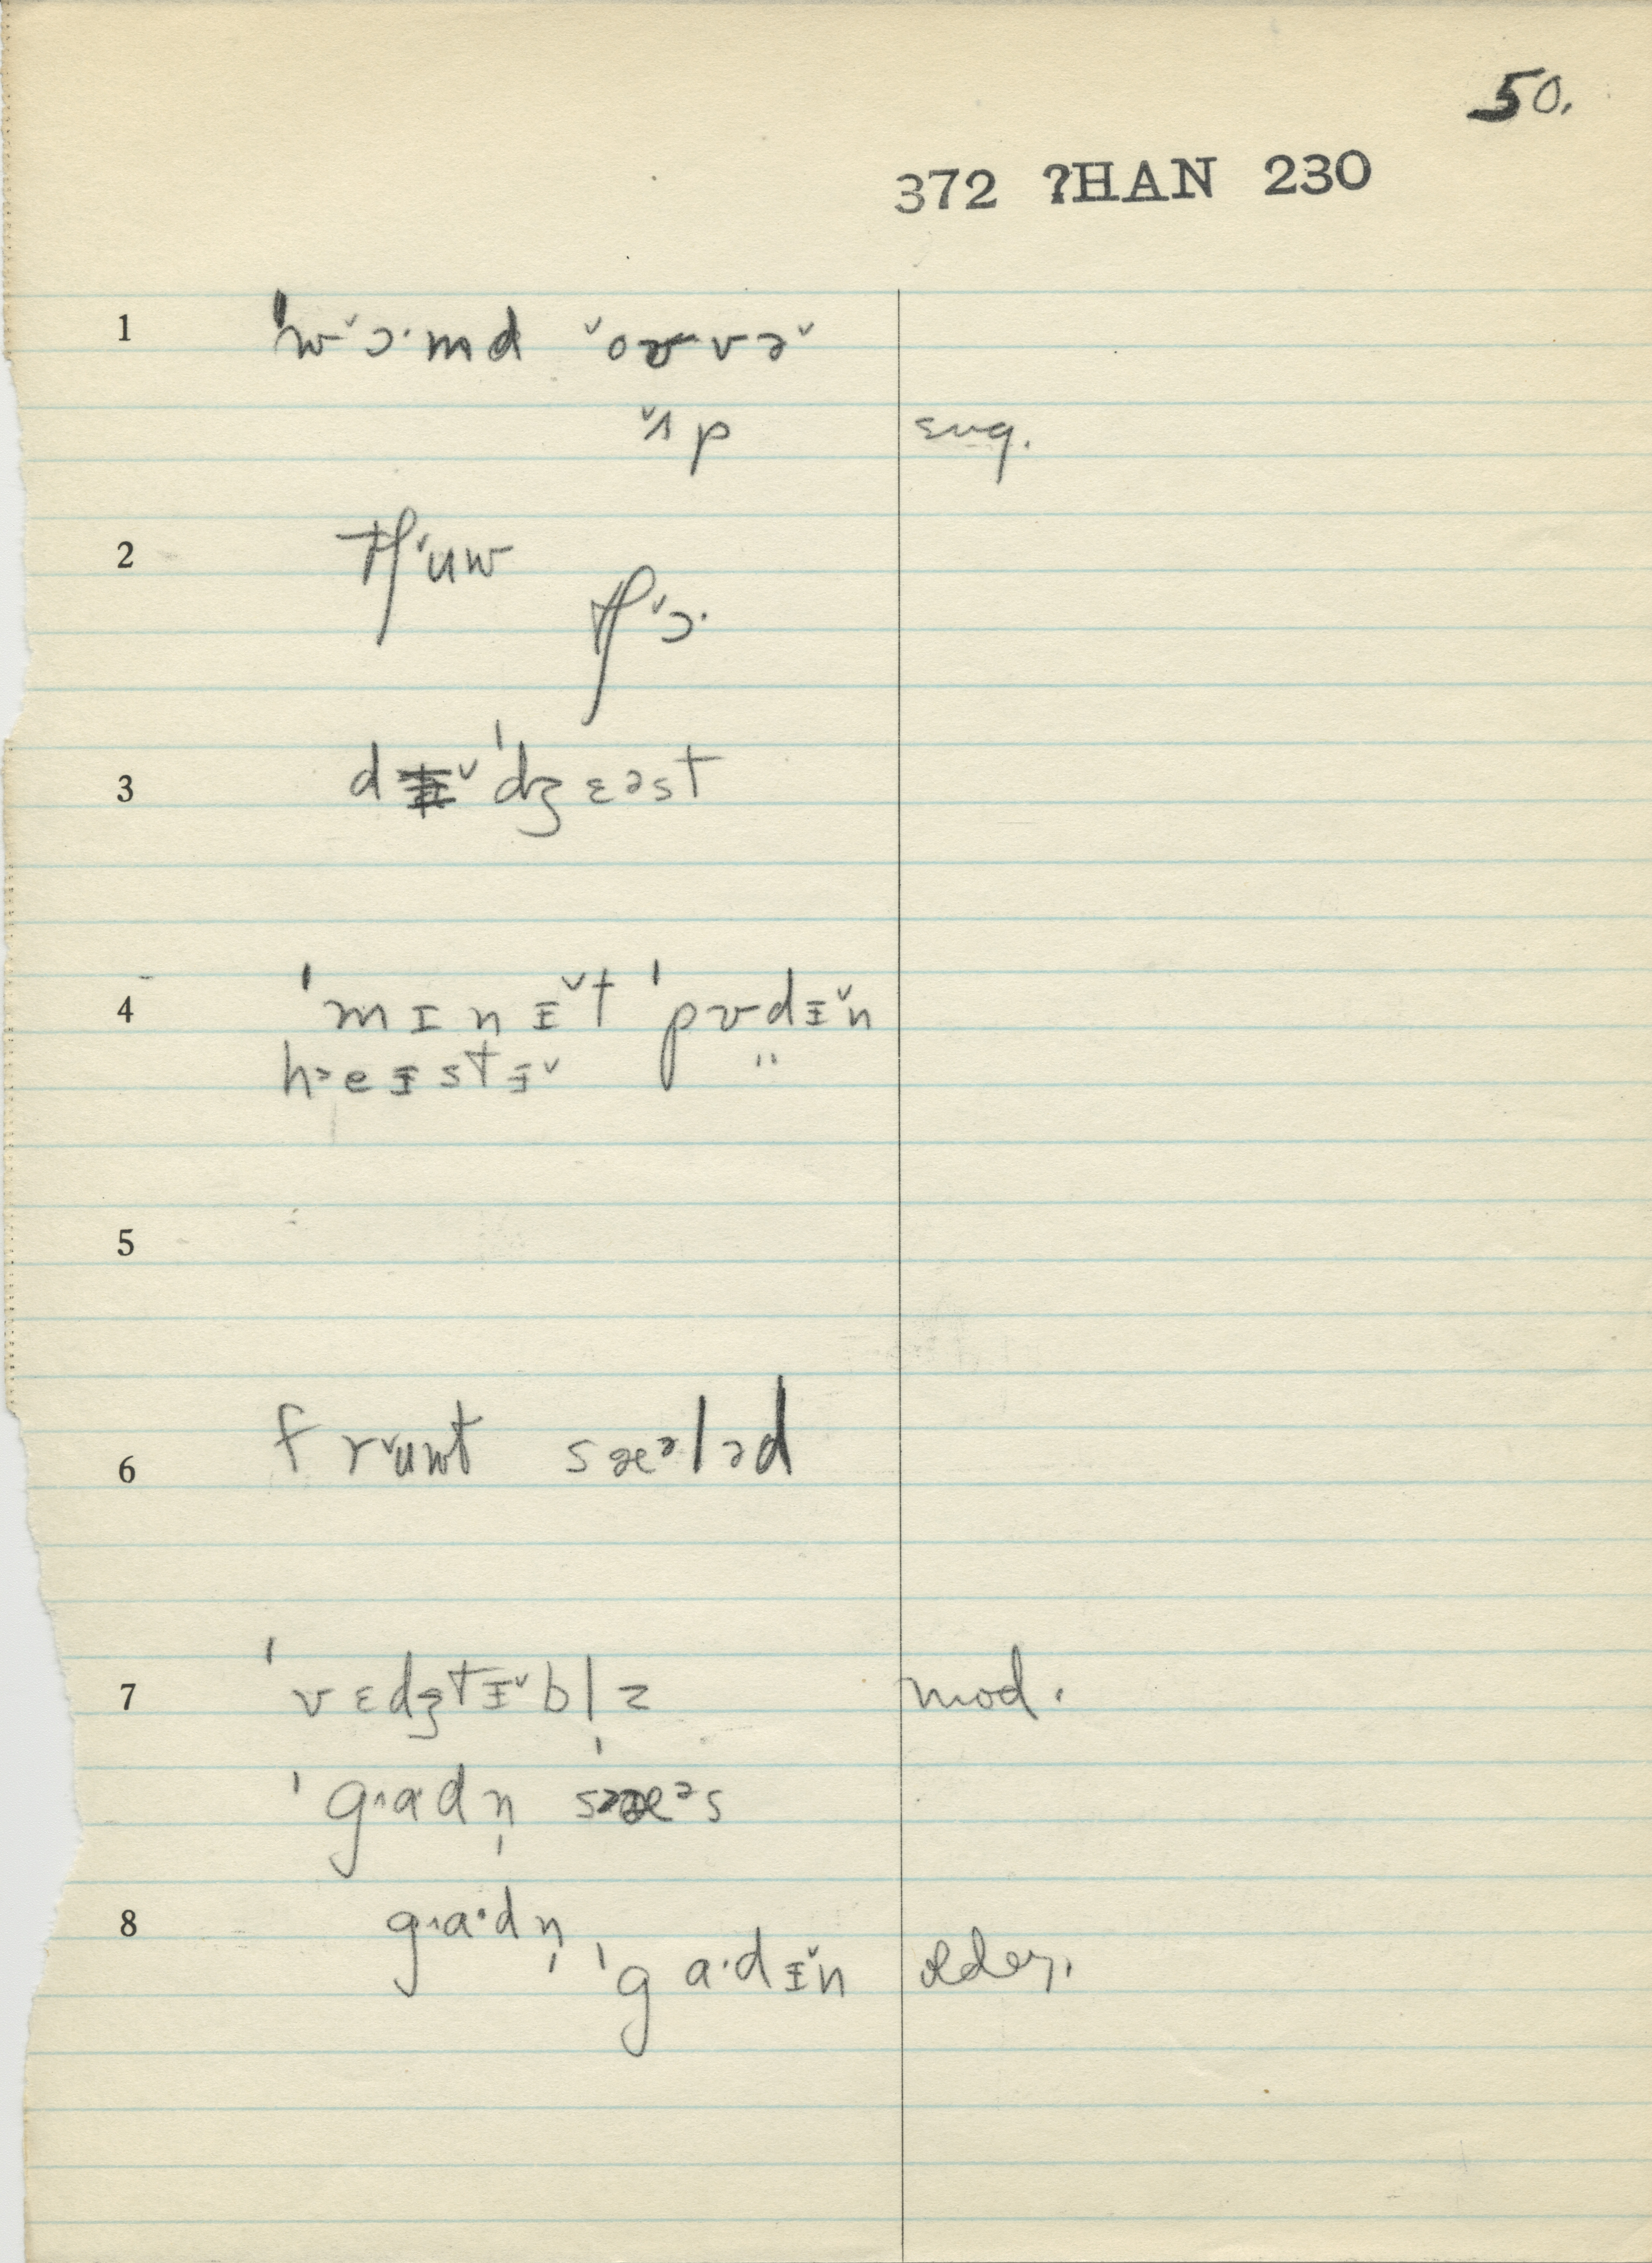 50.
372 ?HAN 230
1 ˈw˅ɔ·md ˅oʊvə˅
˅ʌp ɛnq.
2 tʃ˅uw
tʃ˅ɔ·
3 dɪ˅ˈdʒɛəst
4 ˈmɪnɪ˅t ˈpʊdɪ˅n
h>eɪstɪ˅ "
5
6 fr˅uwt sæᵊləd
7 ˈvɛdʒtɪ˅bl̩z mod.
ˈg˄adn̩ sæᵊs
8 g˄a·dn̩
ˈga·dɪ˅n older.